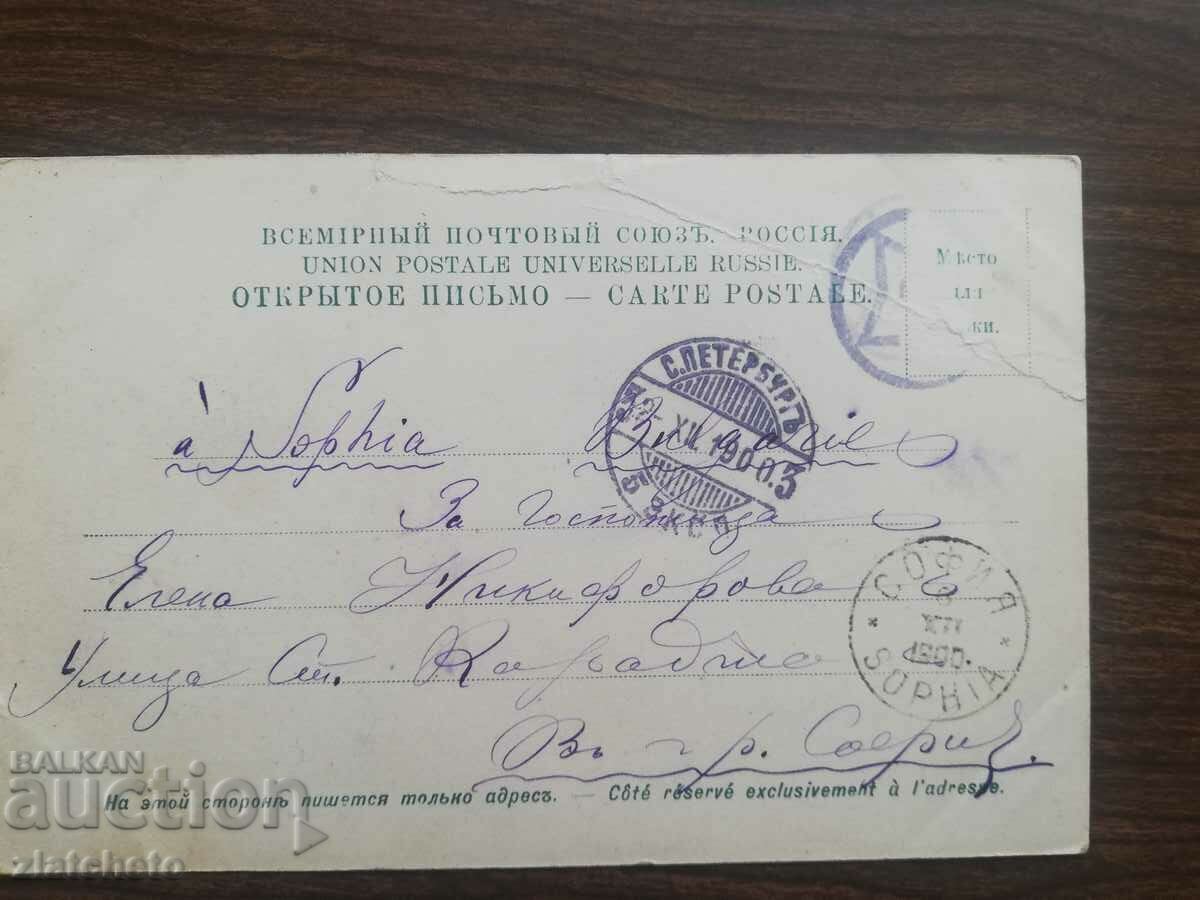 ВСЕМІРНЫЙ ПОЧТОВЫЙ СОЮЗЪ. РОССІЯ.
UNION POSTALE UNIVERSELLE RUSSIE.
ОТКРЫТОЕ ПИСЬМО — CARTE POSTALE.
Мѣсто
для
ки.
С.ПЕТЕРБУРГЪ
XII.1900.3
5 ЭКСП
à Sophia Bulgarie
За Госпожица
Елена Никифорова
Улица Ст. Караджа
Въ гр. София.
СОФИЯ
XII
1900.
SOPHIA
На этой сторонѣ пишется только адресъ. — Côté réservé exclusivement à l'adresse.
BALKAN
auction
zlatcheto